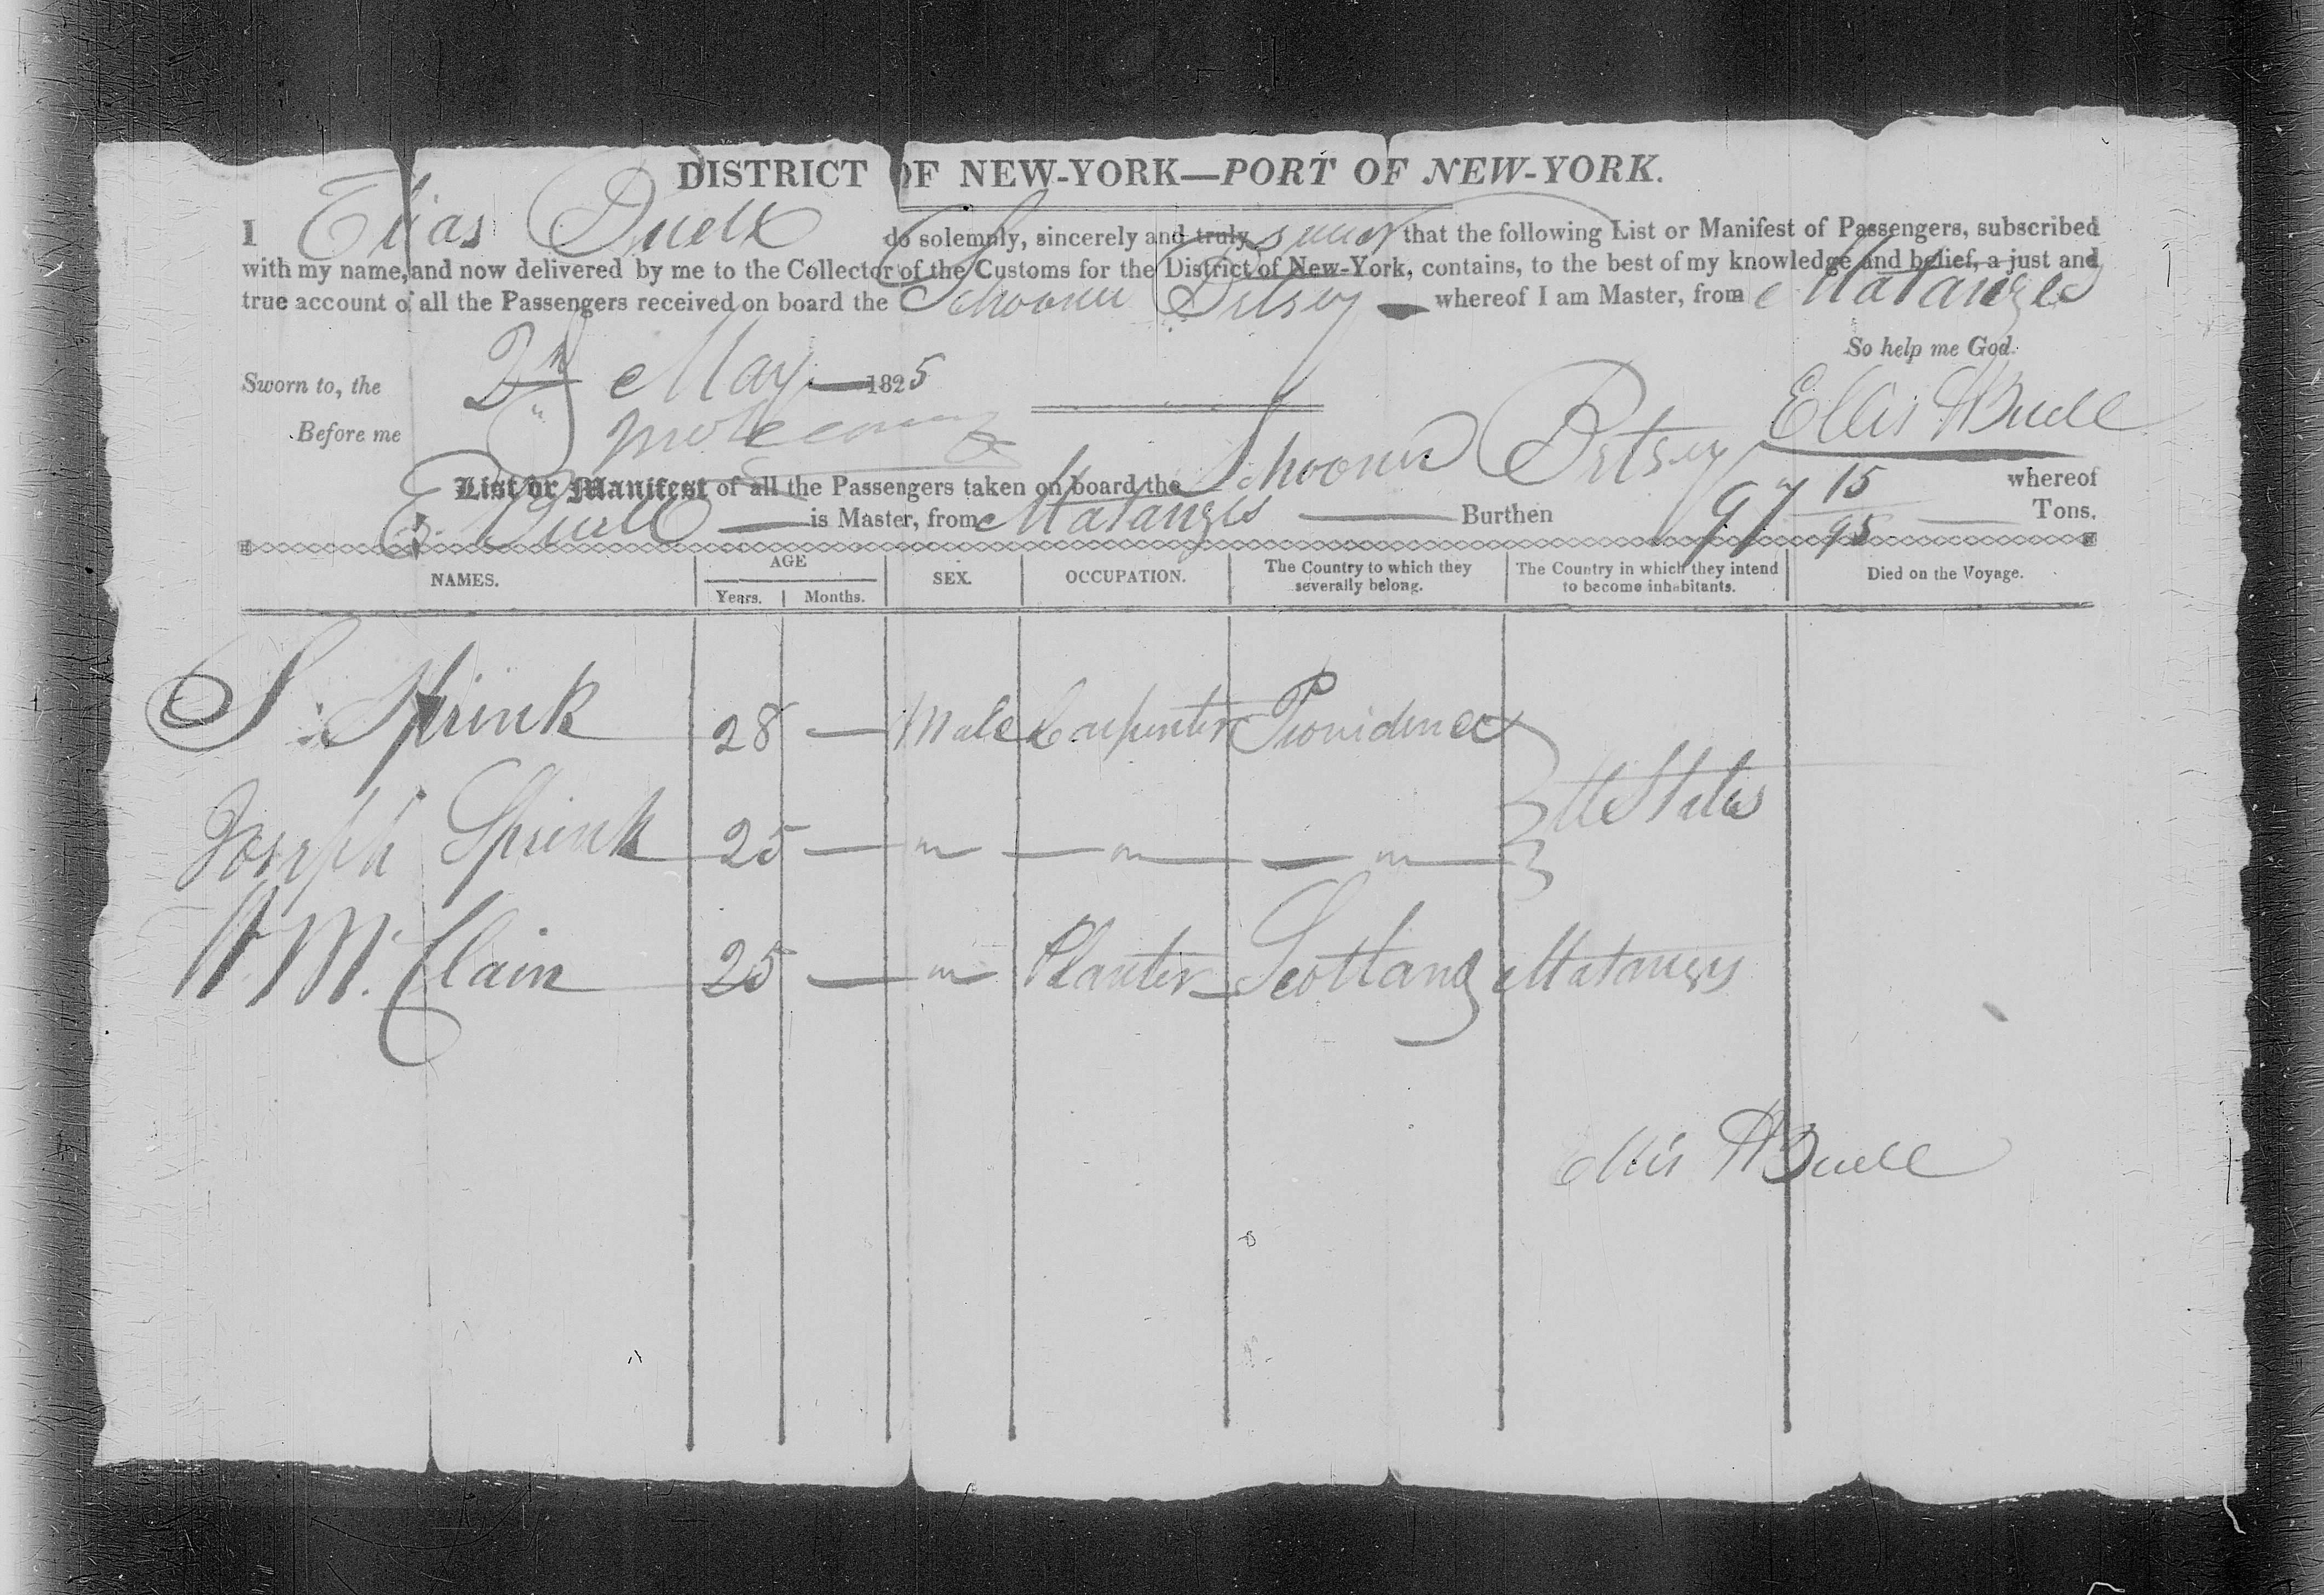 DISTRICT OF NEW-YORK—PORT OF NEW-YORK.
I Elias Buell do solemnly, sincerely and truly swear that the following List or Manifest of Passengers, subscribed
with my name, and now delivered by me to the Collector of the Customs for the District of New-York, contains, to the best of my knowledge and belief, a just and
true account of all the Passengers received on board the Schooner Betsey whereof I am Master, from Matanzes
So help me God.
Sworn to, the 2d May 1825
Before me
Ellis H Buell
List or Manifest of all the Passengers taken on board the Schooner Betsey whereof
E. Buell is Master, from Matanzes Burthen 97 15/95 Tons.
NAMES. AGE Years. Months. SEX. OCCUPATION. The Country to which they severally belong. The Country in which they intend to become inhabitants. Died on the Voyage.
S. Sprink 28 — Male Carpenter Providence
U States
Joseph Sprink 25 — " — " — "
W McClain 25 — " Planter Scotland Matanzes
Ellis H Buell